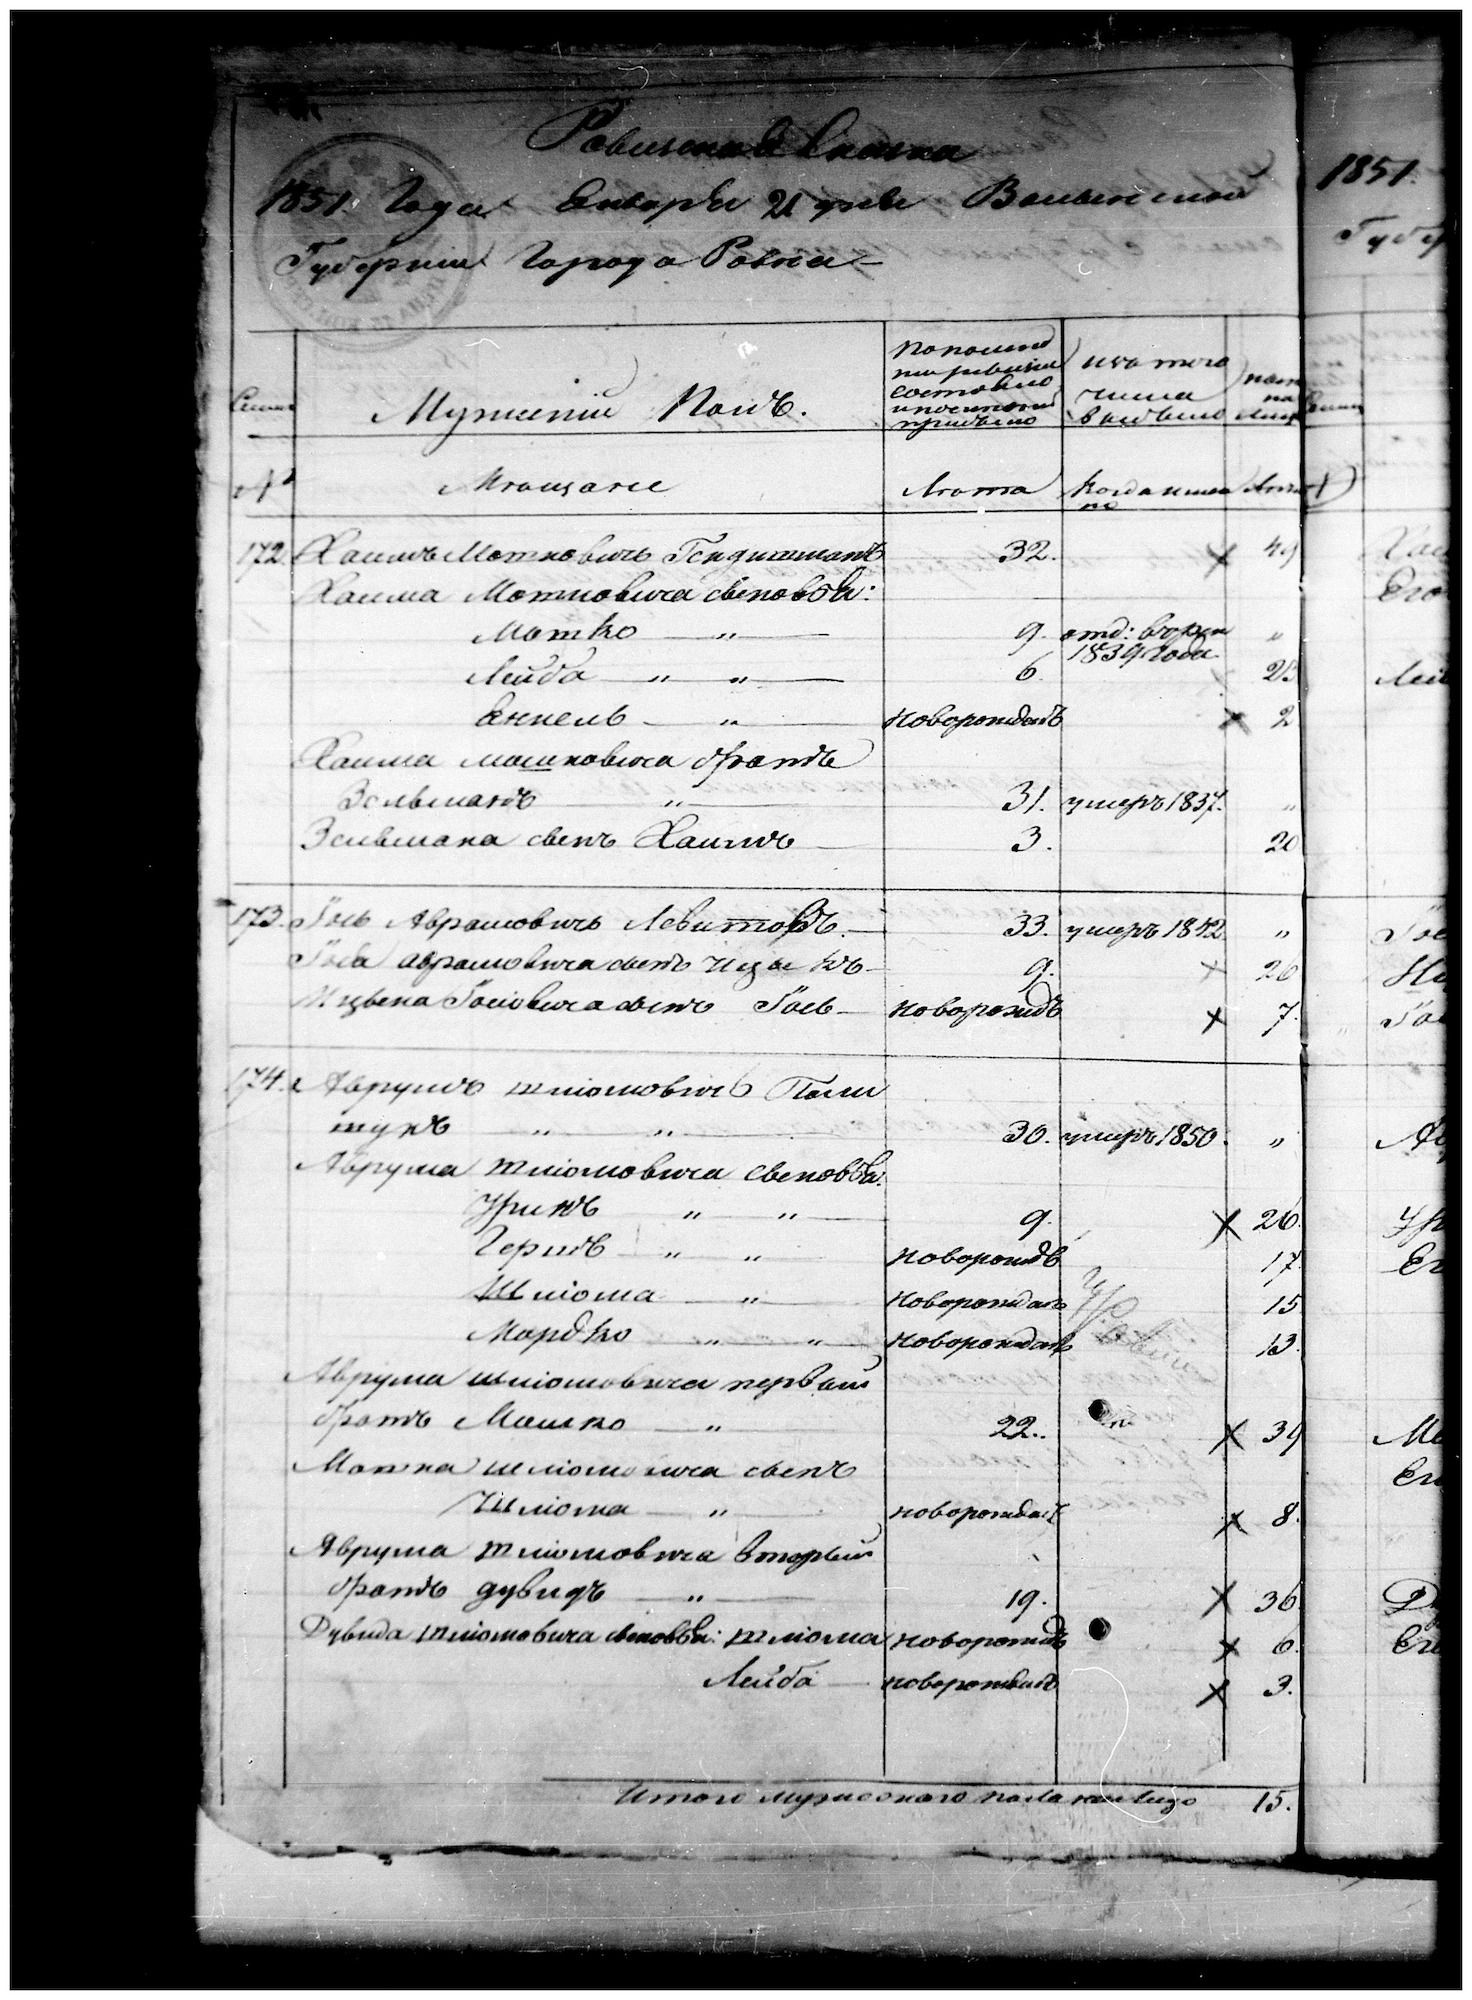 Ревизская Сказка
1851. Года Января 21 дня Волынской
Губернии Города Ровна
1851.
Губер
Семьи
Мужескій Полъ.
По последней
ревизіи
состояло
и после оной
прибыло
Изъ того
числа
выбыло
ныне
на
лицо
№
Мещане
Лета
Когда именно
Лета
172. Хаимъ Мотковичъ Гендишманъ 32. × 49
Хаима Мотковича сыновья:
Мотко — „ — 9. отд: в рек 1839 года „
Лейба — „ „ — 6. 23
Янкель — „ — новорожденъ × 2
Хаима Мошковича братъ
Зельманъ „ 31. умеръ 1837. „
Зельмана сынъ Хаимъ — 3. 20
173. Іось Аврамовичъ Левитовъ. — 33. умеръ 1842 „
Іося Аврамовича сынъ Ицыкъ — 9. × 26
Ицыка Іосіовича сынъ Іось — новорожд × 7.
174. Аврумъ Шліомовичъ Поли
щукъ „ „ 30. умеръ 1850. „
Аврума Шліомовича сыновья:
Уринъ „ „ 9. × 26.
Гершъ „ „ новорожд 17.
Шліома — „ новорожданъ 15
Мордко „ „ новорожданъ 13.
Аврума Шліомовича первый
братъ Мошко — „ 22. × 39
Мошка Шліомовича сынъ
Шліома — „ новорожданъ × 8.
Аврума Шліомовича вторый
братъ Дувидъ — „ 19. × 36
Дувида Шліомовича сыновья: Шліома новорожд × 6.
Лейба — новорожданъ × 3.
Итого мужескаго пола на лицо 15.